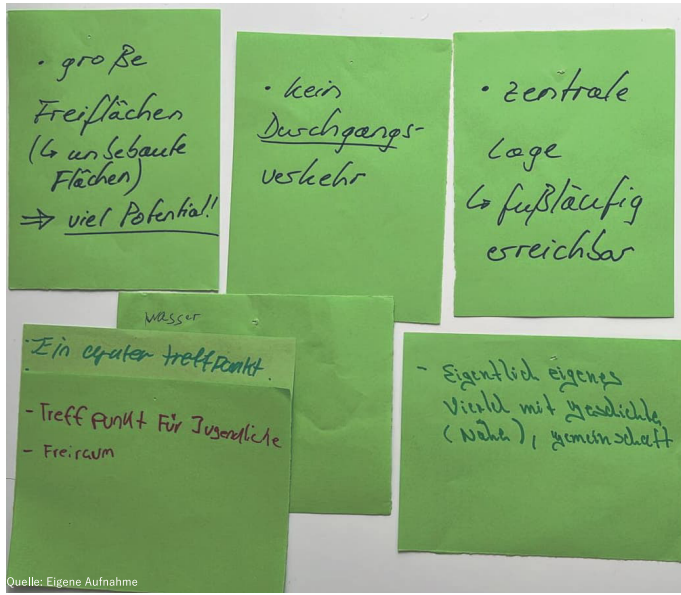 • große
Freiflächen
(↳ unbebaute
Flächen)
⇒ viel Potential!!
• kein
Durchgangs-
verkehr
• zentrale
Lage
↳ fußläufig
erreichbar
wasser
• Ein guter treffpunkt.
- Treffpunkt für Jugendliche
- Freiraum
- Eigentlich eigenes
Viertel mit geschichte,
(Nähe), gemeinschaft
Quelle: Eigene Aufnahme